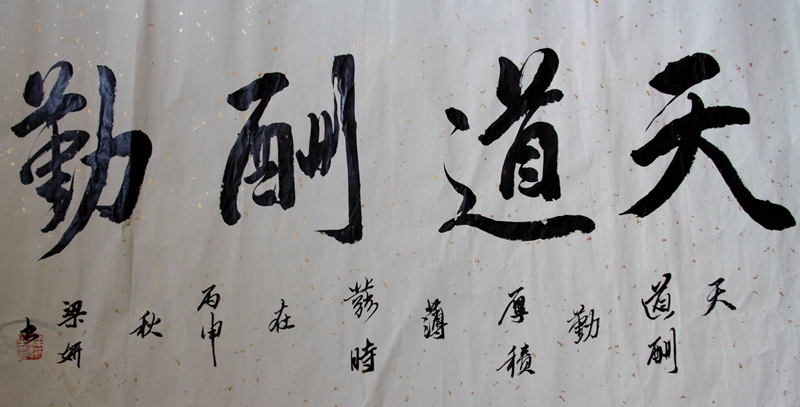 天道酬勤
天
道酬
勤
厚積
薄
發時
在
丙申
秋
梁妍
书